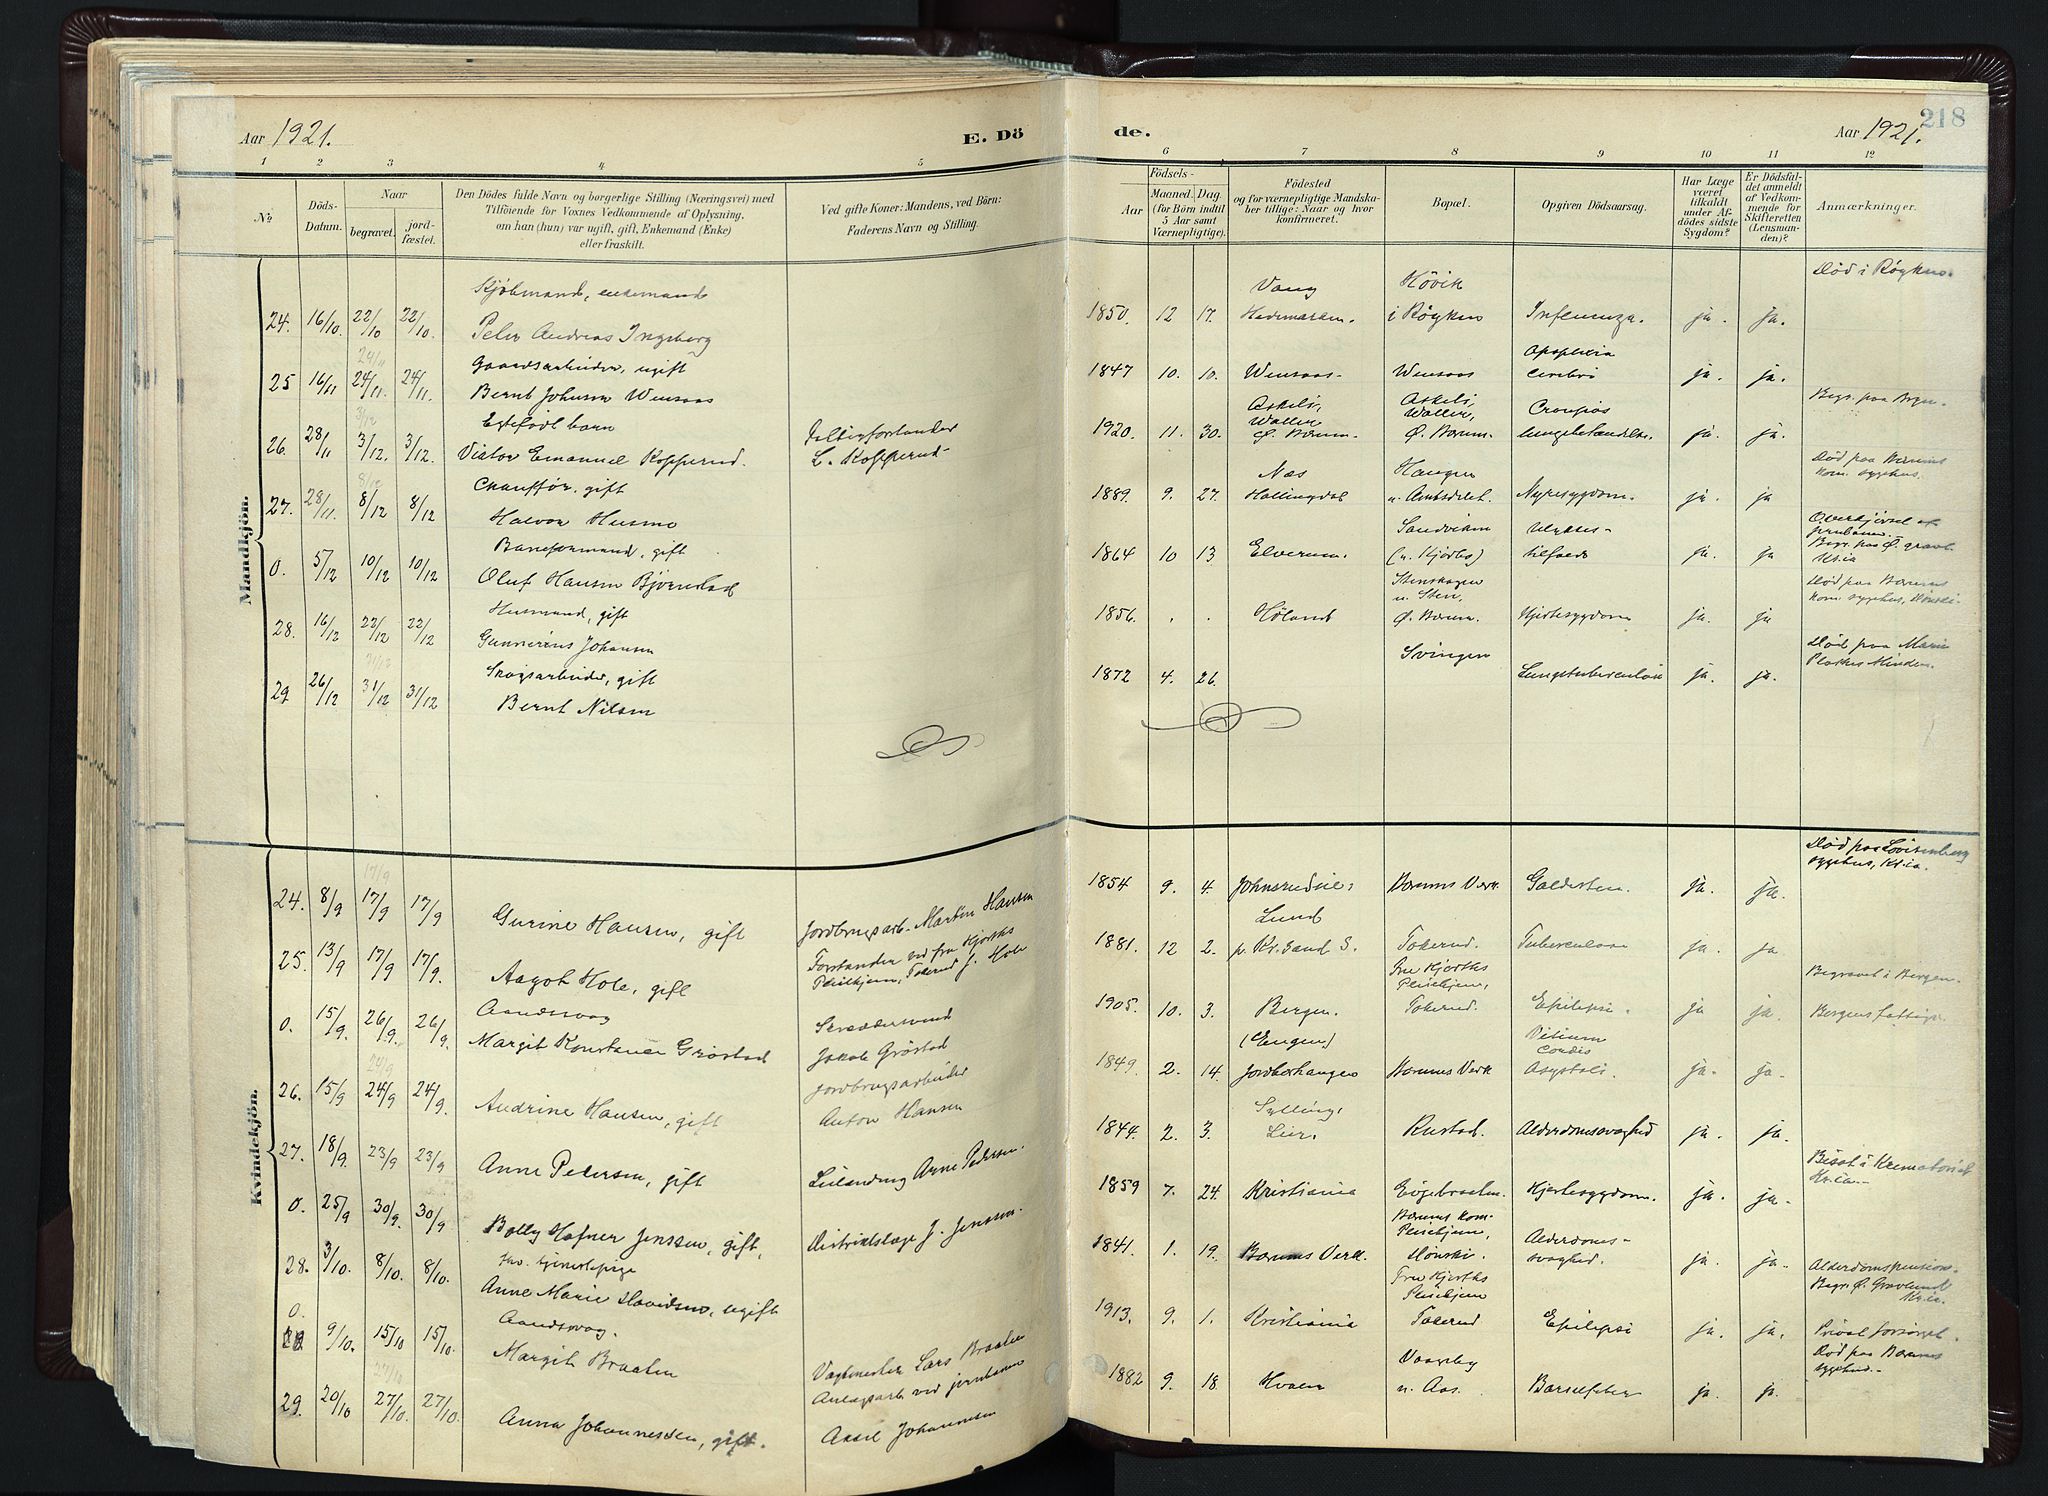 218
Aar 1921.
E. Dö
de.
Aar 1921.
1 2 3 4 5 6 7 8 9 10 11 12
№
Döds-
Datum.
Naar
begravet.
jord-
fæstet.
Den Dödes fulde Navn og borgerlige Stilling (Næringsvei) med
Tilföiende for Voxnes Vedkommende af Oplysning,
om han (hun) var ugift, gift, Enkemand (Enke)
eller fraskilt.
Ved gifte Koner: Mandens, ved Börn:
Faderens Navn og Stilling.
Födsels-
Aar
Maaned. Dag.
(for Börn indtil
5 Aar samt
Værnepligtige).
Födested
og for værnepligtige Mandska-
ber tillige: Naar og hvor
konfirmeret.
Bopæl.
Opgiven Dödsaarsag.
Har Læge
været
tilkaldt
under Af-
dödes sidste
Sygdom?
Er Dödsfal-
det anmeldt
af Vedkom-
mende for
Skifteretten
(Lensman-
den)?
Anmærkninger.
Mandkjön.
enkemand
Vang Høvik Død i Røyken.
24. 16/10. 22/10 22/10. Peder Andreas Ingeberg 1850. 12 17. Hedemarken. i Røyken Influenza. ja. ja.
24/11
Gaardsarbeider, ugift Apoplexia
25 16/11 24/11. 24/11. Bernt Johnsen Wensaas 1847 10. 10. Wensaas Wensaas cerebri ja. ja.
3/12
Egtefødt barn Croupøs
26. 28/11 3/12. 3/12. Victor Emanuel Kopperud. L. Kopperud 1920. 11. 30. Ø. Bærum. Ø. Bærum. lungebetændelse. ja. ja.
8/12
Chauffør, gift Næs Haugen Død paa Bærums
kom. sygehus.
27. 28/11. 8/12 8/12 Halvor Husmo 1889. 9. 27. Hallingdal Nyresygdom. ja. ja
Baneformand, gift Sandviken Ulykkes- Overkjørsel af
jernbanen.
0. 5/12 10/12 10/12 Oluf Hansen Bjørnstad 1864 10 13 Elverum. tilfælde ja. ja Kr.ia
Husmand, gift n. Sten. Død paa Bærums
28. 16/12 22/12 22/12 Gunnerius Johansen 1856. . . Høland Ø. Bærum. Hjertesygdom ja. ja
31/12
Skogsarbeider, gift Svingen Død paa Marie
Plahtes Minde.
29 26/12 31/12 31/12 Bernt Nilsen 1872 4. 26. Lungetuberculose ja. ja.
Kvindekjön.
17/9
Død paa Lovisenberg
sygehus, Kr.ia.
24. 8/9 17/9 17/9 Gurine Hansen, gift Jordbrugsarb. Martin Hansen 1854 9. 4. Bærums Verk Galdesten. ja. ja.
Lund
25. 13/9 17/9 17/9. Aagot Hole, gift Forstander ved fru Hjorths
Pleiehjem, Tokerud J. Hole 1881. 12 2. p. Kr.sand S. Tokerud. Tuberculose ja. ja
Aandssvag Fru Hjorths
Pleiehjem, Begravet i Bergen.
0. 15/9. 26/9. 26/9. Margit Konstance Grøstad Jakob Grøstad 1905. 10. 3. Bergen. Tokerud. Epilepsi. ja ja.
24/9
(Engen) Vitium
cordis
26. 15/9 24/9 24/9. Andrine Hansen, gift Jordbrugsarbeider
Anton Hansen 1849. 2. 14. Jordbærhaugen Bærums Verk Asystoli. ja. ja.
Sylling,
27. 18/9. 23/9 23/9 Anne Petersen, gift Leilænding Arne Pedersen. 1844. 2. 3. Lier. Rustad. Alderdomssvaghed ja. ja.
Bisat i Krematoriet
Kr.ia.
0. 25/9 30/9. 30/9 Bolly Hafner Jenssen, gift, Distriktslæge J. Jenssen. 1859 7. 24. Kristiania Hjertesygdom. ja. ja.
Bærums kom.
Pleiehjem, Alderdoms-
28. 3/10. 8/10. 8/10. fhv. tjenestepige
Anne Marie Davidsen, ugift 1841. 1. 19. Bærums Verk. Dønski. svaghed. ja. ja.
Fru Hjorths
Pleiehjem Begr. Ø. Gravlund
Kr.ia.
0. 9/10. 15/10 15/10. Aandssvag.
Margit Braaten Vagtmester Lars Braaten 1913. 9. 1. Kristiania Tokerud Epilepsi ja. ja. Privat forsørget.
27/10
Død paa Bærums
29. 20/10 27/10. 27/10. Anna Johannessen, gift. Anlægsarb. ved jernbanen
Axel Johannesen 1882 9. 18. n. Aas. Barselfeber ja. ja.